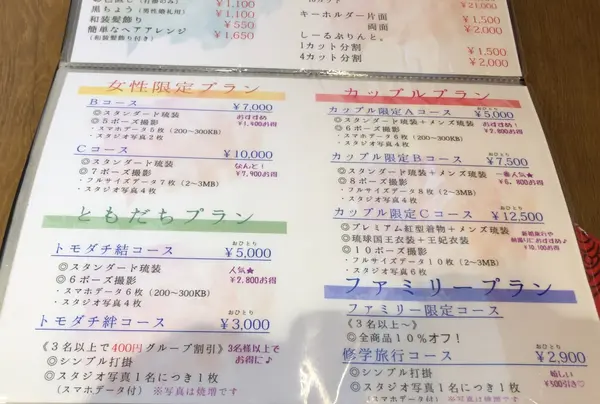 ¥1,100
黒ちょう(男性婚礼用) ¥1,100
和装髪飾り ¥550
簡単なヘアアレンジ ¥1,650
(和装髪飾り付き)
¥21,000
キーホルダー片面 ¥1,500
両面 ¥2,000
しーるぷりんと。
1カット分割 ¥1,500
4カット分割 ¥2,000
女性限定プラン
Bコース ¥7,000
◎スタンダード琉装 おすすめ
◎5ポーズ撮影 ¥1,400お得
・スマホデータ5枚(200~300KB)
・スタジオ写真2枚
Cコース ¥10,000
◎スタンダード琉装 なんと!
◎7ポーズ撮影 ¥7,900お得
・フルサイズデータ7枚(2~3MB)
・スタジオ写真4枚
ともだちプラン
おひとり
トモダチ結コース ¥5,000
◎スタンダード琉装 人気★
◎6ポーズ撮影 ¥2,800お得
・スマホデータ6枚(200~300KB)
・スタジオ写真4枚
おひとり
トモダチ絆コース ¥3,000
《3名以上で400円グループ割引》 3名様以上で
◎シンプル打掛 お得に♪
◎スタジオ写真1名につき1枚
(スマホデータ付) ※写真は焼増です
カップルプラン
おひとり
カップル限定Aコース ¥5,000
◎スタンダード琉装+メンズ琉装 おすすめ!
◎6ポーズ撮影 ¥2,800お得
・スマホデータ6枚(200~300KB)
・スタジオ写真4枚
おひとり
カップル限定Bコース ¥7,500
◎スタンダード琉装+メンズ琉装 一番人気★
◎8ポーズ撮影 ¥6,800お得
・フルサイズデータ8枚(2~3MB)
・スタジオ写真4枚
おひとり
カップル限定Cコース ¥12,500
◎プレミアム紅型着物+メンズ琉装 新婚旅行や
◎琉球国王衣装+王妃衣装 前撮りにおすすめ♪
◎10ポーズ撮影 ¥10,100お得
・フルサイズデータ10枚(2~3MB)
・スタジオ写真6枚
ファミリープラン
ファミリー限定コース
《3名以上~》
◎全商品10%オフ!
おひとり
修学旅行コース ¥2,900
◎シンプル打掛 嬉しい
◎スタジオ写真1名につき1枚 ¥500割引♡
(スマホデータ付) ※写真は焼増です